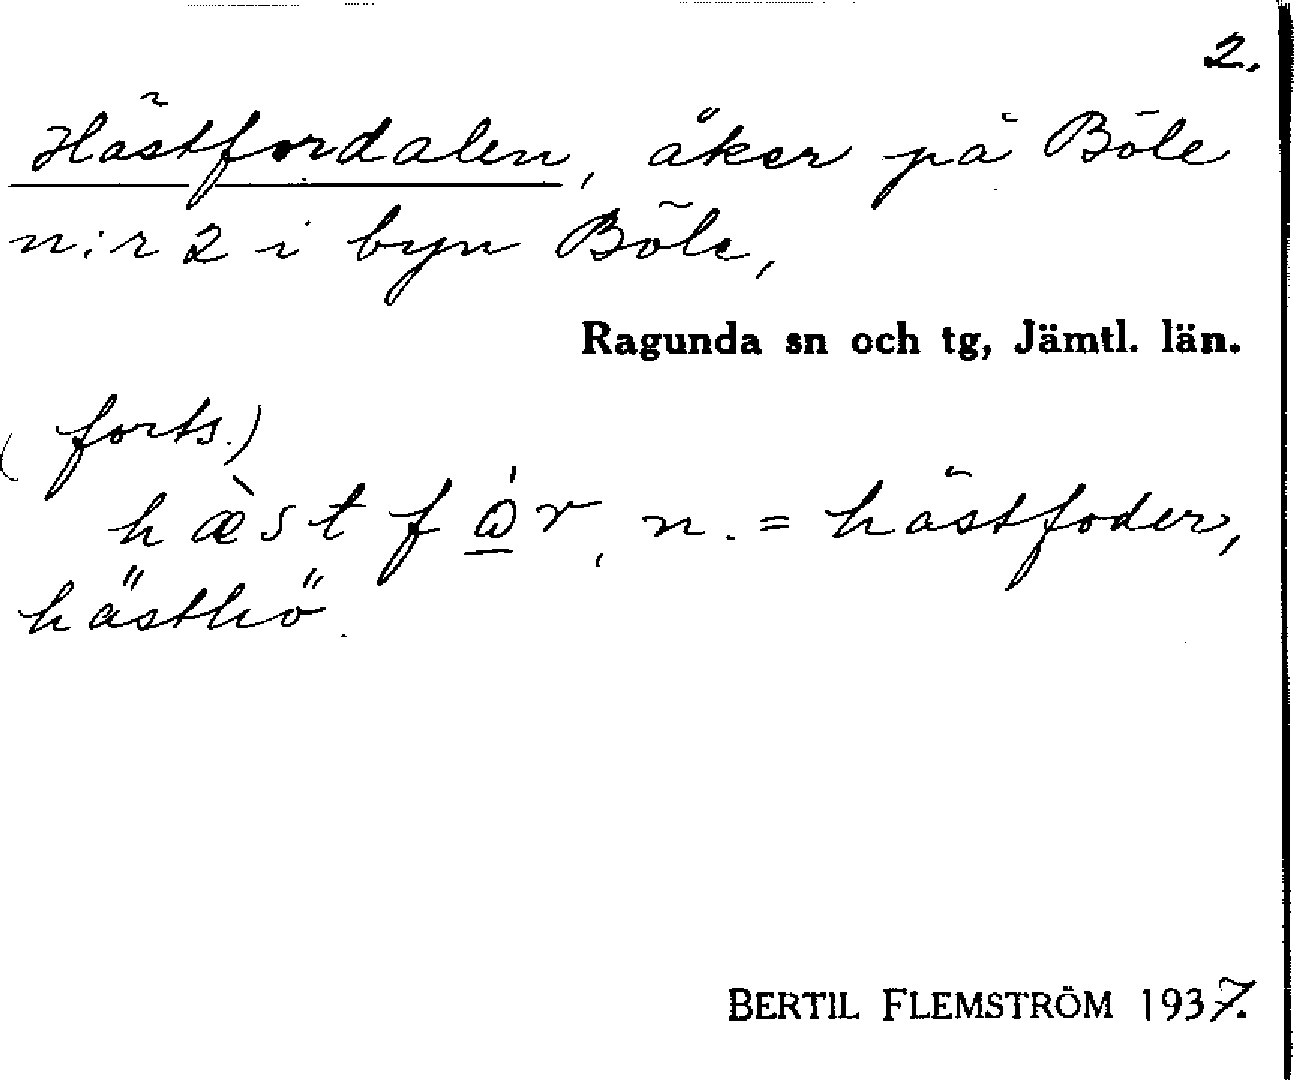 2.
Hästfordalen, åker på Böle
n:r 2 i byn Böle,
Ragunda sn och tg, Jämtl. län.
(forts.)
hæ̀stfώ̲r, n. = hästfoder,
hästhö.
BERTIL FLEMSTRÖM 1937.